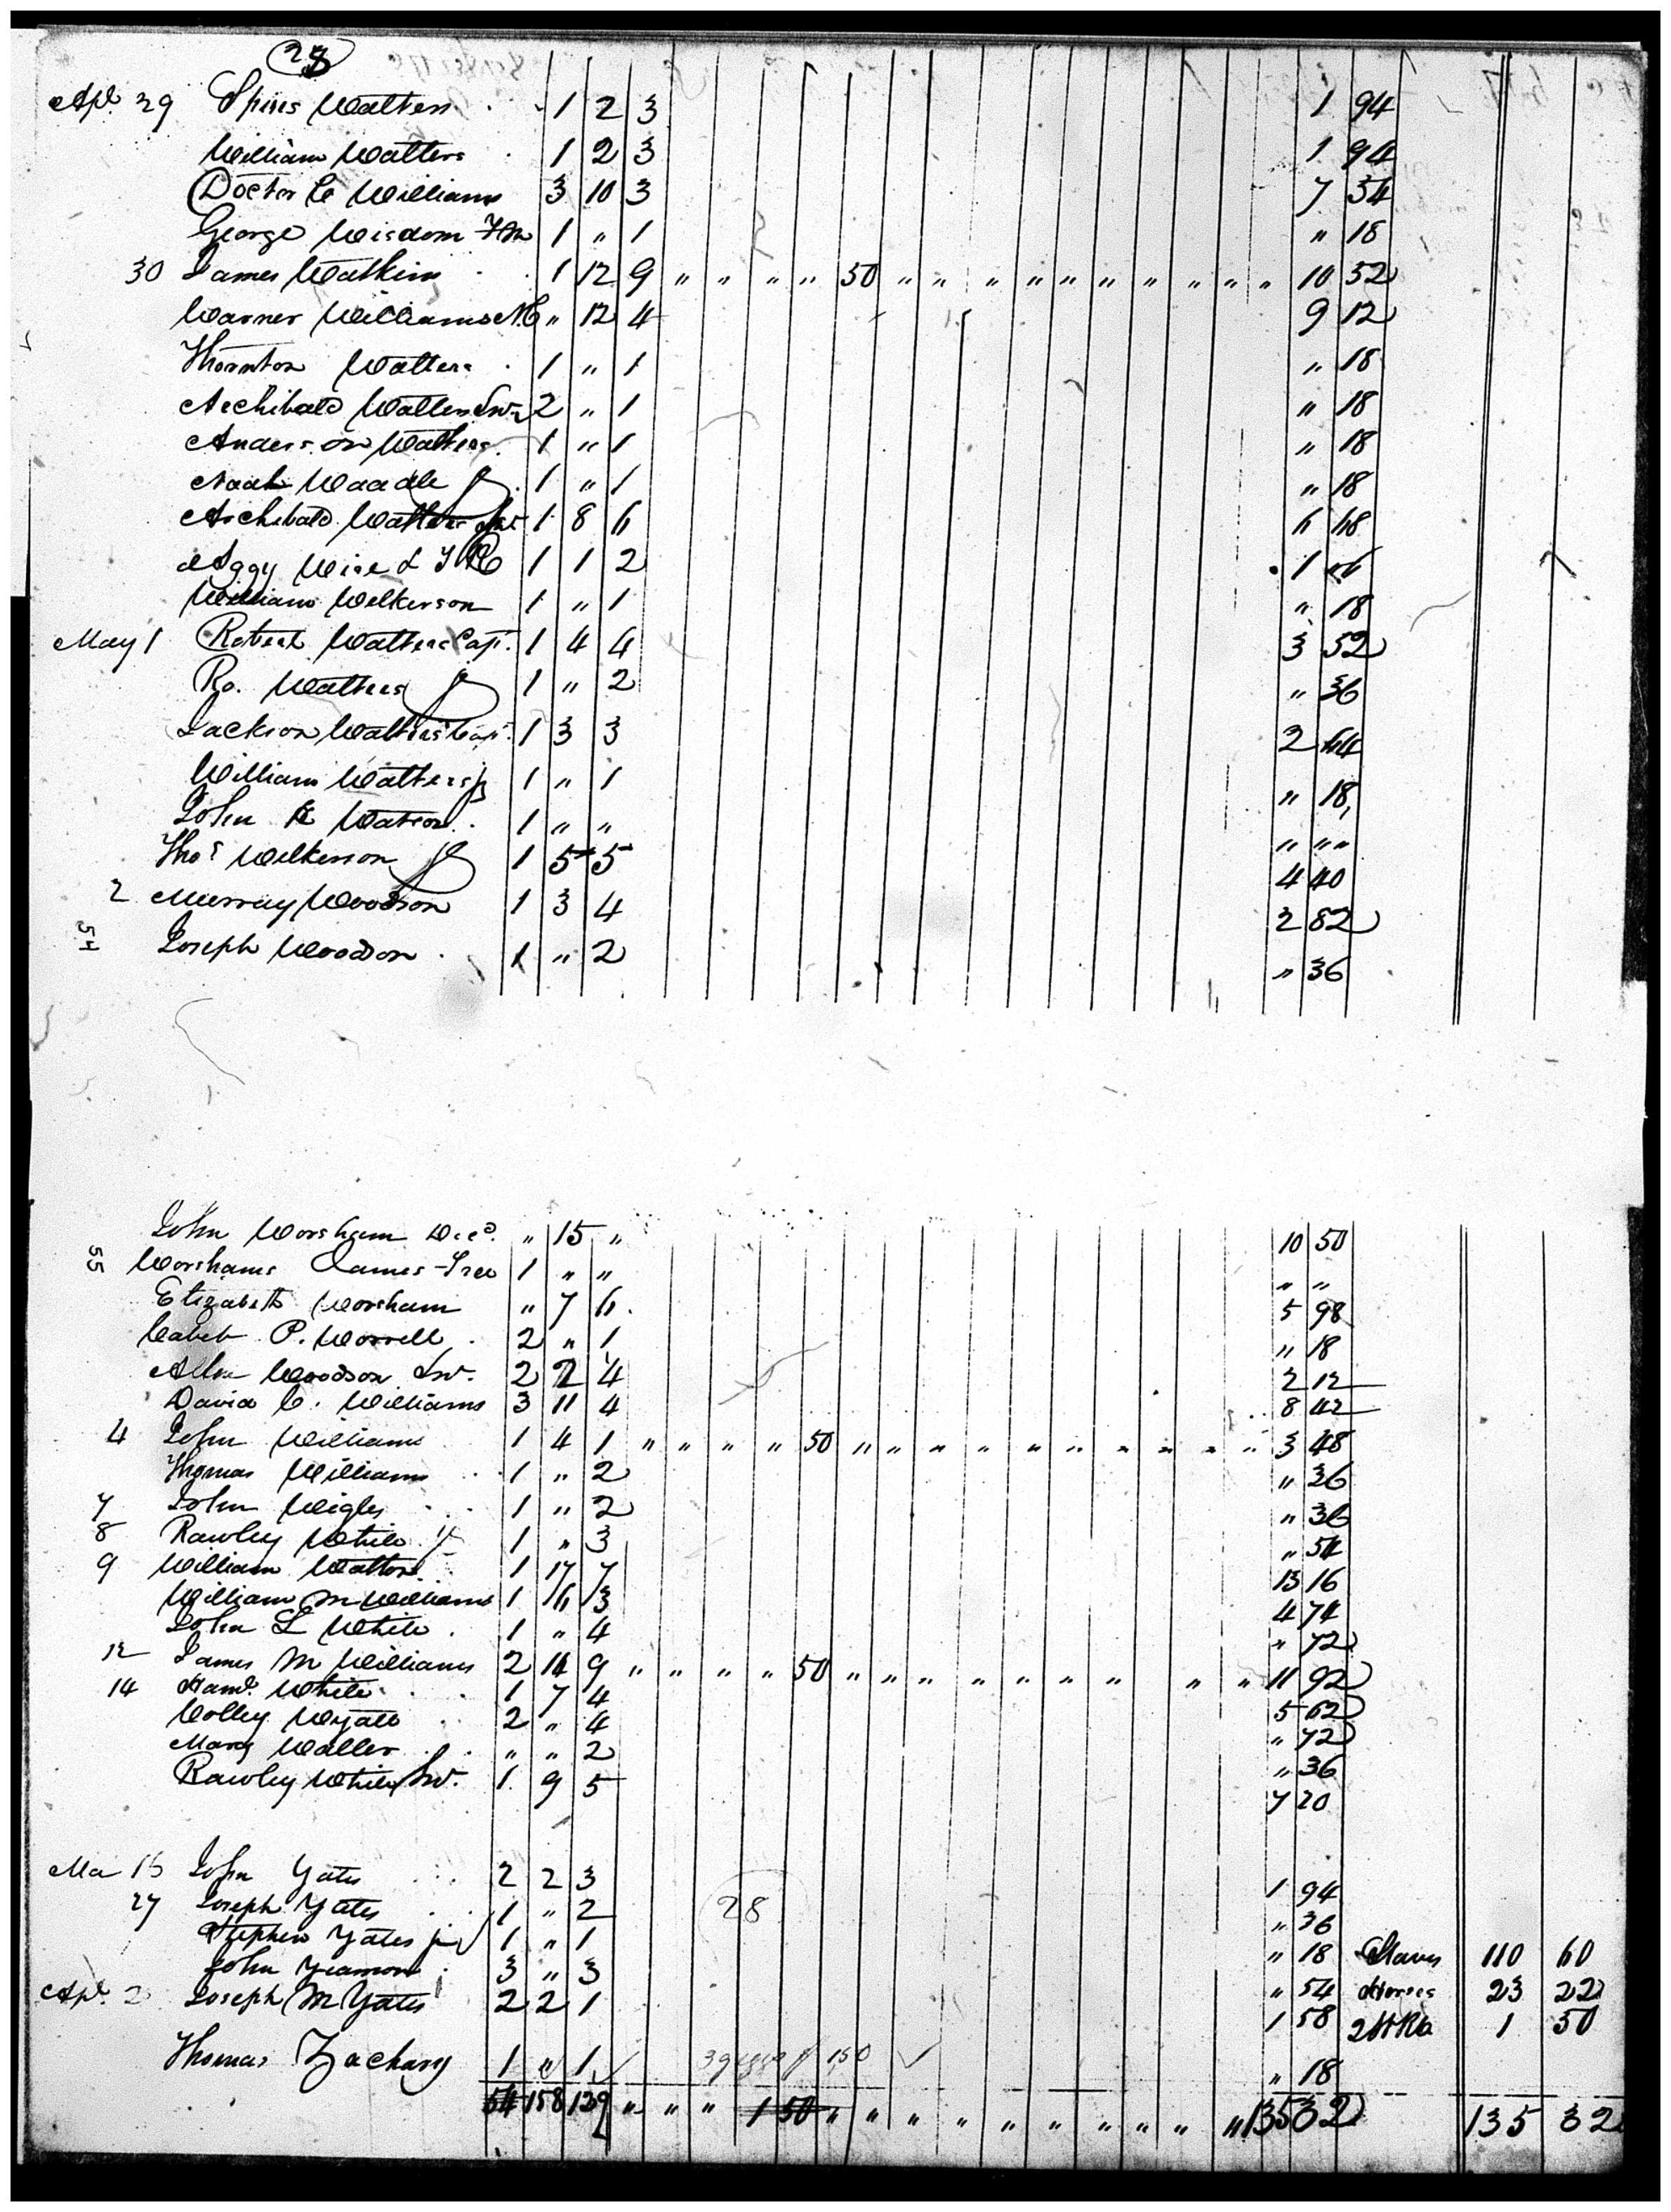 28
Apl 29 Spires Watters 1 2 3 1 94
William Watters 1 2 3 1 94
Doctor C Williams 3 10 3 7 54
George Wisdom 1 " 1 " 18
30 James Watkins 1 12 9 " " " " 50 " " " " " " " " " " 10 52
Warner Williams " 12 4 9 12
Thornton Watters 1 " 1 " 18
Archibald Watters Snr 2 " 1 " 18
Anderson Watters 1 " 1 " 18
Noah Waddle 1 " 1 " 18
Archibald Watters 1 8 6 6 68
Aggy Wise 1 1 2 1 06
William Wilkerson 1 " 1 " 18
May 1 Robert Watters Capt. 1 4 4 3 52
Ro. Watters Jr 1 " 2 " 36
Jackson Watters Capt. 1 3 3 2 64
William Watters Jr 1 " 1 " 18
John Watson 1 " " " " "
Thos Wilkerson Jr 1 5 5 4 40
2 Murray Woodson 1 3 4 2 82
54
Joseph Woodson 1 " 2 " 36
John Worsham Decd. " 15 " 10 50
55
Worshams James Free 1 " " " "
Elizabeth Worsham " 7 6 5 98
Caleb P. Worrell 2 " 1 " 18
Allen Woodson Snr. 2 2 4 2 12
David C. Williams 3 11 4 8 42
4 John Williams 1 4 1 " " " " 50 " " " " " " " " " " 3 48
Thomas Williams 1 " 2 " 36
7 John Wigley 1 " 2 " 36
8 Rawley White 1 " 3 " 54
9 William Watton 1 17 7 13 16
William M Williams 1 6 3 4 74
John L White 1 " 4 " 72
12 James M Williams 2 14 9 " " " " 50 " " " " " " " " " 11 92
14 Haml. White 1 7 4 5 62
Colley Wyatt 2 " 4 " 72
Mary Waller " " 2 " 36
Rawley White Snr. 1 9 5 7 20
Ma 16 John Yates 2 2 3 1 94
27 Joseph Yates 1 " 2 28 " 36
Stephen Yates Jr 1 " 1 " 18 Slaves 110 60
John Yeamon 3 " 3 " 54 Horses 23 22
Apl. 2 Joseph M Yates 2 2 1 1 58 1 50
Thomas Zachary 1 " 1 150 " 18
54 158 129 " " " 1 50 " " " " " " " " " " 135 32 135 32